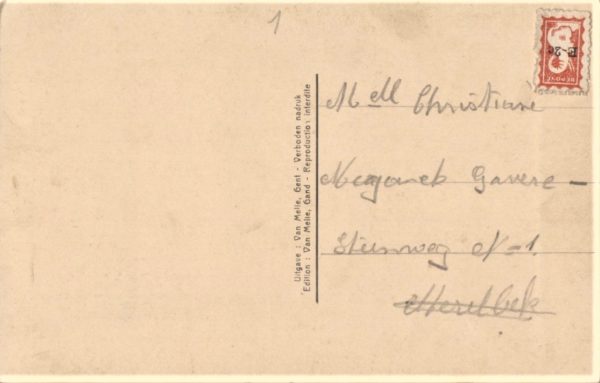 1
E-2c
DEPOSÉ
Uitgave : Van Melle, Gent - Verboden nadruk
Edition : Van Melle, Gand - Reproduction interdite
Mell Christiane
Gavere -
Steenweg N-1.
Merelbek